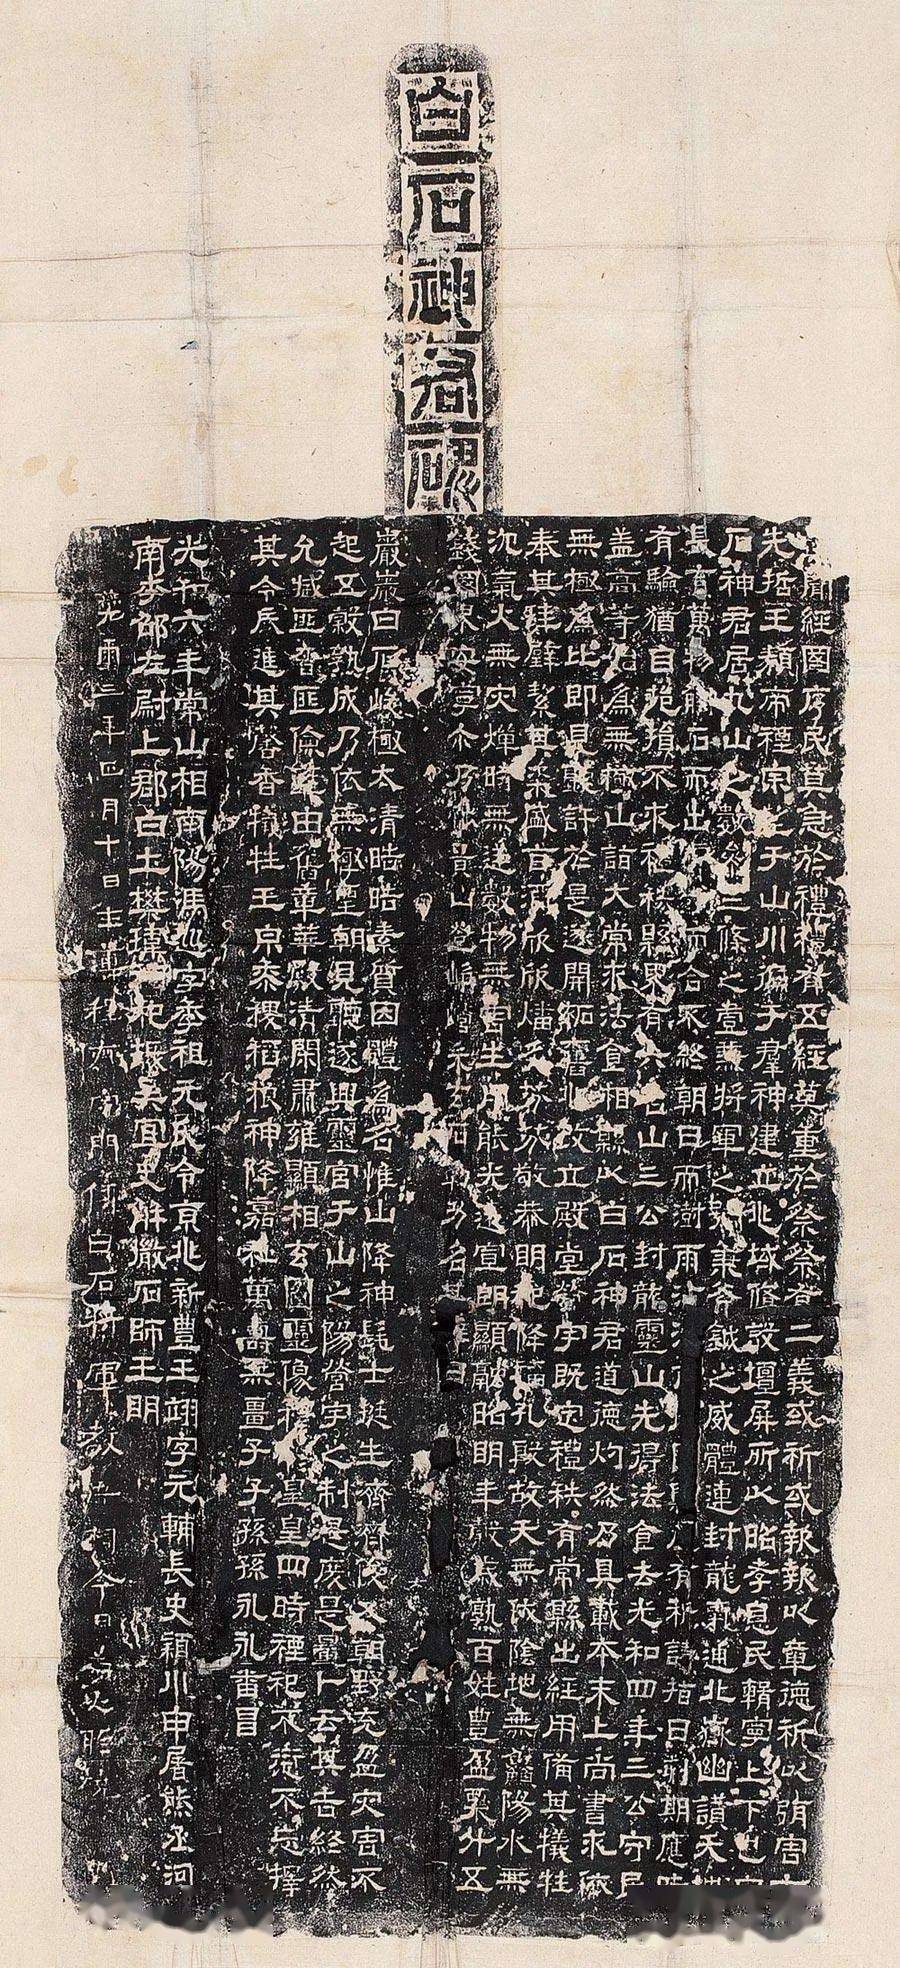 白石神君碑
聞經國序民莫急於禮禮有五經莫重於祭祭有二義或祈或報報以章德祈以弭害古
先哲王類帝禋宗望于山川徧于羣神建立兆域修設壇屏所以昭孝息民輯寧上下也白
石神君居九山之數參三條之壹兼將軍之號秉斧鉞之威體連封龍氣通北嶽幽讚天地
長育萬物觸石而出膚寸而合不終朝日而澍雨沾洽前後國縣屢有祈請指日刻期應時
有驗猶自抱損不求禮秩縣界有六名山三公封龍靈山先得法食去光和四年三公守民
蓋高等始為無極山詣大常求法食相縣以白石神君道德灼然乃具載本末上尚書求依
無極為比即見聽許於是遂開拓舊兆改立殿堂營宇既定禮秩有常縣出經用備其犧牲
奉其珪璧絜其粢盛旨酒欣欣燔炙芬芬敬恭明祀降福孔殷故天無伏陰地無鮮陽水無
沉氣火無灾燀時無逆數物無害生用能光遠宣朗顯融昭明年穀歲熟百姓豐盈粟升五
錢國界安寧爾乃陟景山登崢嶸采玄石勒功名其辭曰
巖巖白石峻極太清皓皓素質因體為名惟山降神髦士挺生濟濟俊乂朝野充盈灾害不
起五穀熟成乃依無極聖朝見聽遂興靈宮于山之陽營宇之制是度是量卜云其吉終然
允臧匪奢匪儉率由舊章華殿清閑肅雍顯相玄圖靈像穆穆皇皇四時禋祀不愆不忘擇
其令辰進其馨香犧牲玉帛黍稷稻粮神降嘉祉萬壽無疆子子孫孫永永番昌
光和六年常山相南陽馮巡字季祖元氏令京兆新豐王翊字元輔長史潁川申屠熊丞河
南李邵左尉上郡白土樊瑋祠祀掾吳宜史解徽石師王明
元璽三年四月十日主簿程疵家門傳白石將軍教吾祠今日為火所